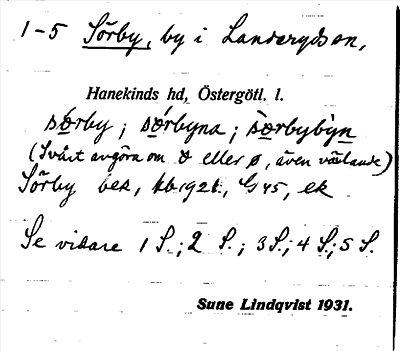 1-5 Sörby, by i Landerydssn,
Hanekinds hd, Östergötl. l.
sørby ; sørbyna ; sørbybỳn
(Svårt avgöra om ơ eller ø, även växlande)
Sörby bes, kb 1921, G 45, ek
Se vidare 1 S.; 2 S.; 3 S.; 4 S.; 5 S.
Sune Lindqvist 1931.